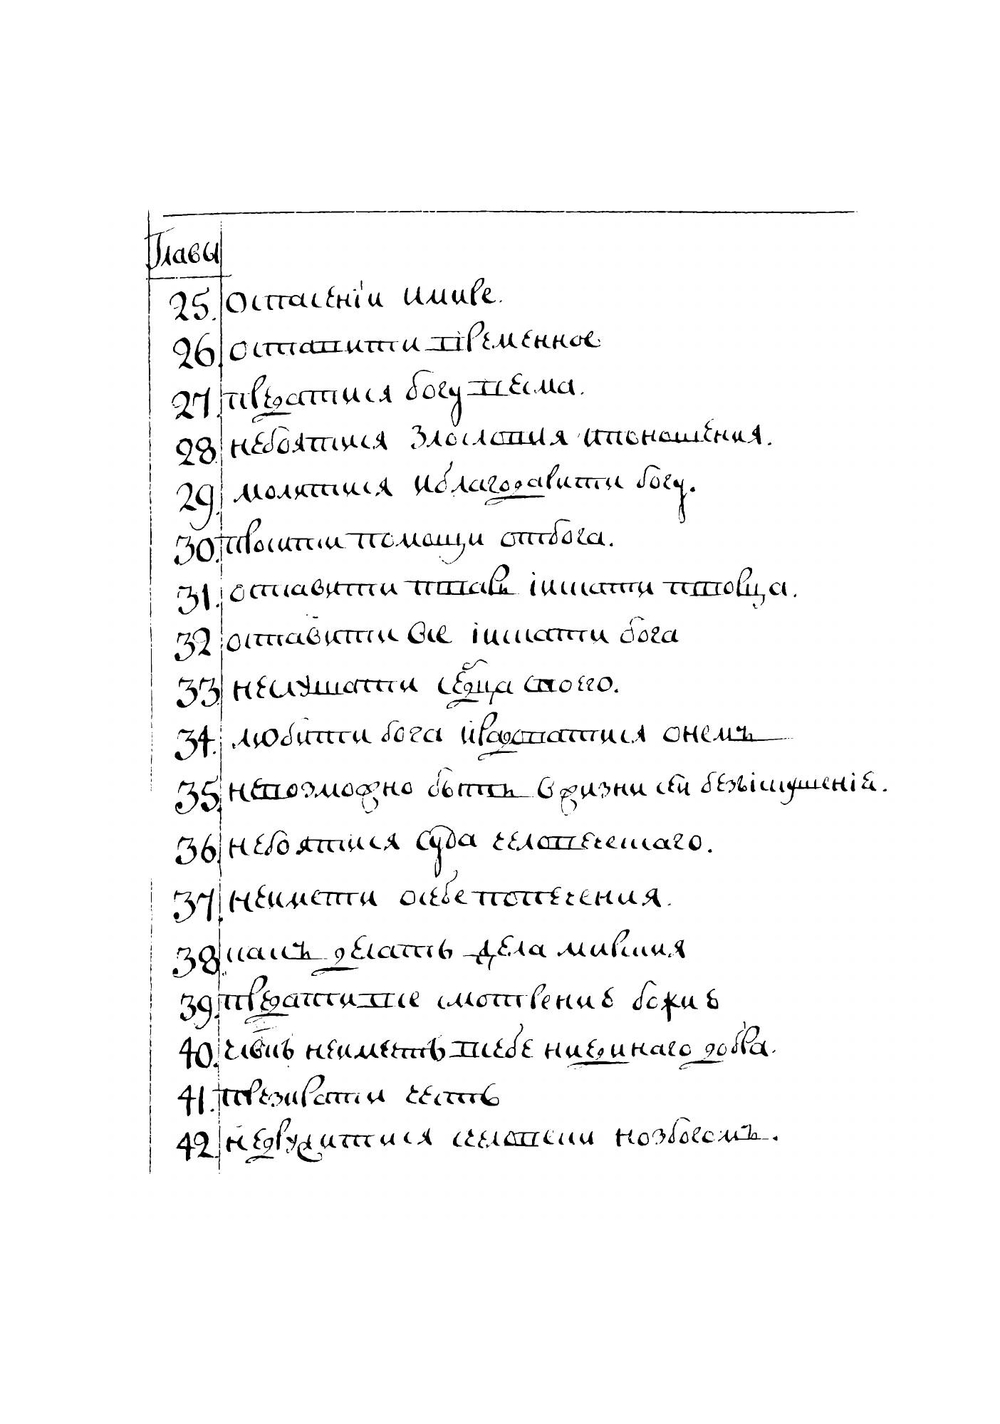 Главы
25. Оспасенїи имире.
26. оставити временное
27. предатися богу весма.
28. небоятися злословия ипоношения.
29. молитися иблагодарити богу.
30. просити помощи отбога.
31. оставити тварь іискати творца.
32. оставити все іискати бога
33. неслушати сердца своего.
34. любити бога ирадоватися онемъ
35. невозможно быть вжизни сей безъіскушенїя.
36. небоятися суда человеческаго.
37. неимети осебе попечения.
38. какъ делать дела мирския
39. предатися в смотрение божие
40. неиметь в себе ниединаго добра.
41. презирати честь
42. недружитися счеловеки нозбогомъ.